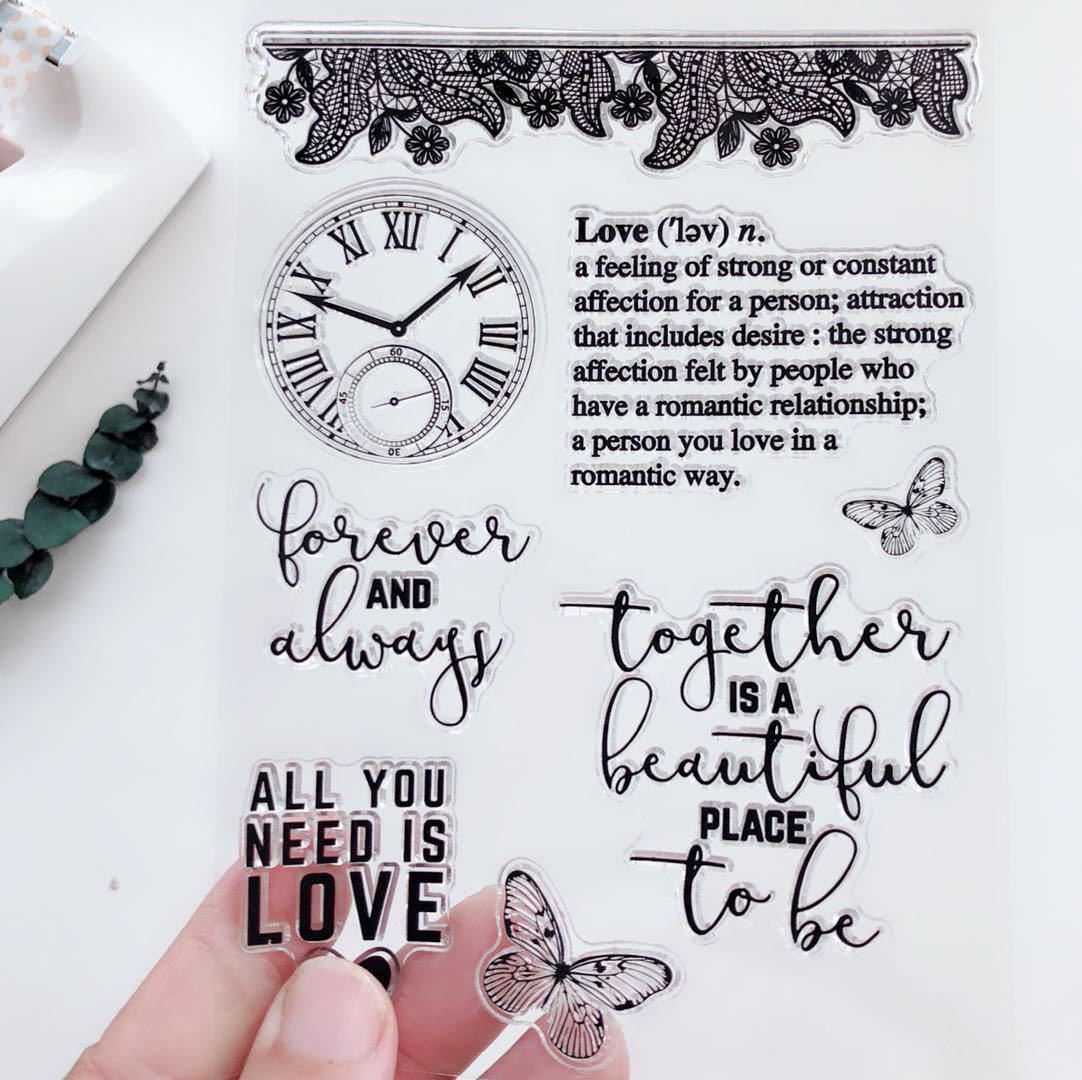 XII
I
II
III
IIII
VIII
XI
X
XI
60
15
30
45
Love ('ləv) n.
a feeling of strong or constant
affection for a person; attraction
that includes desire : the strong
affection felt by people who
have a romantic relationship;
a person you love in a
romantic way.
forever
AND
always
together
IS A
beautiful
PLACE
to be
ALL YOU
NEED IS
LOVE